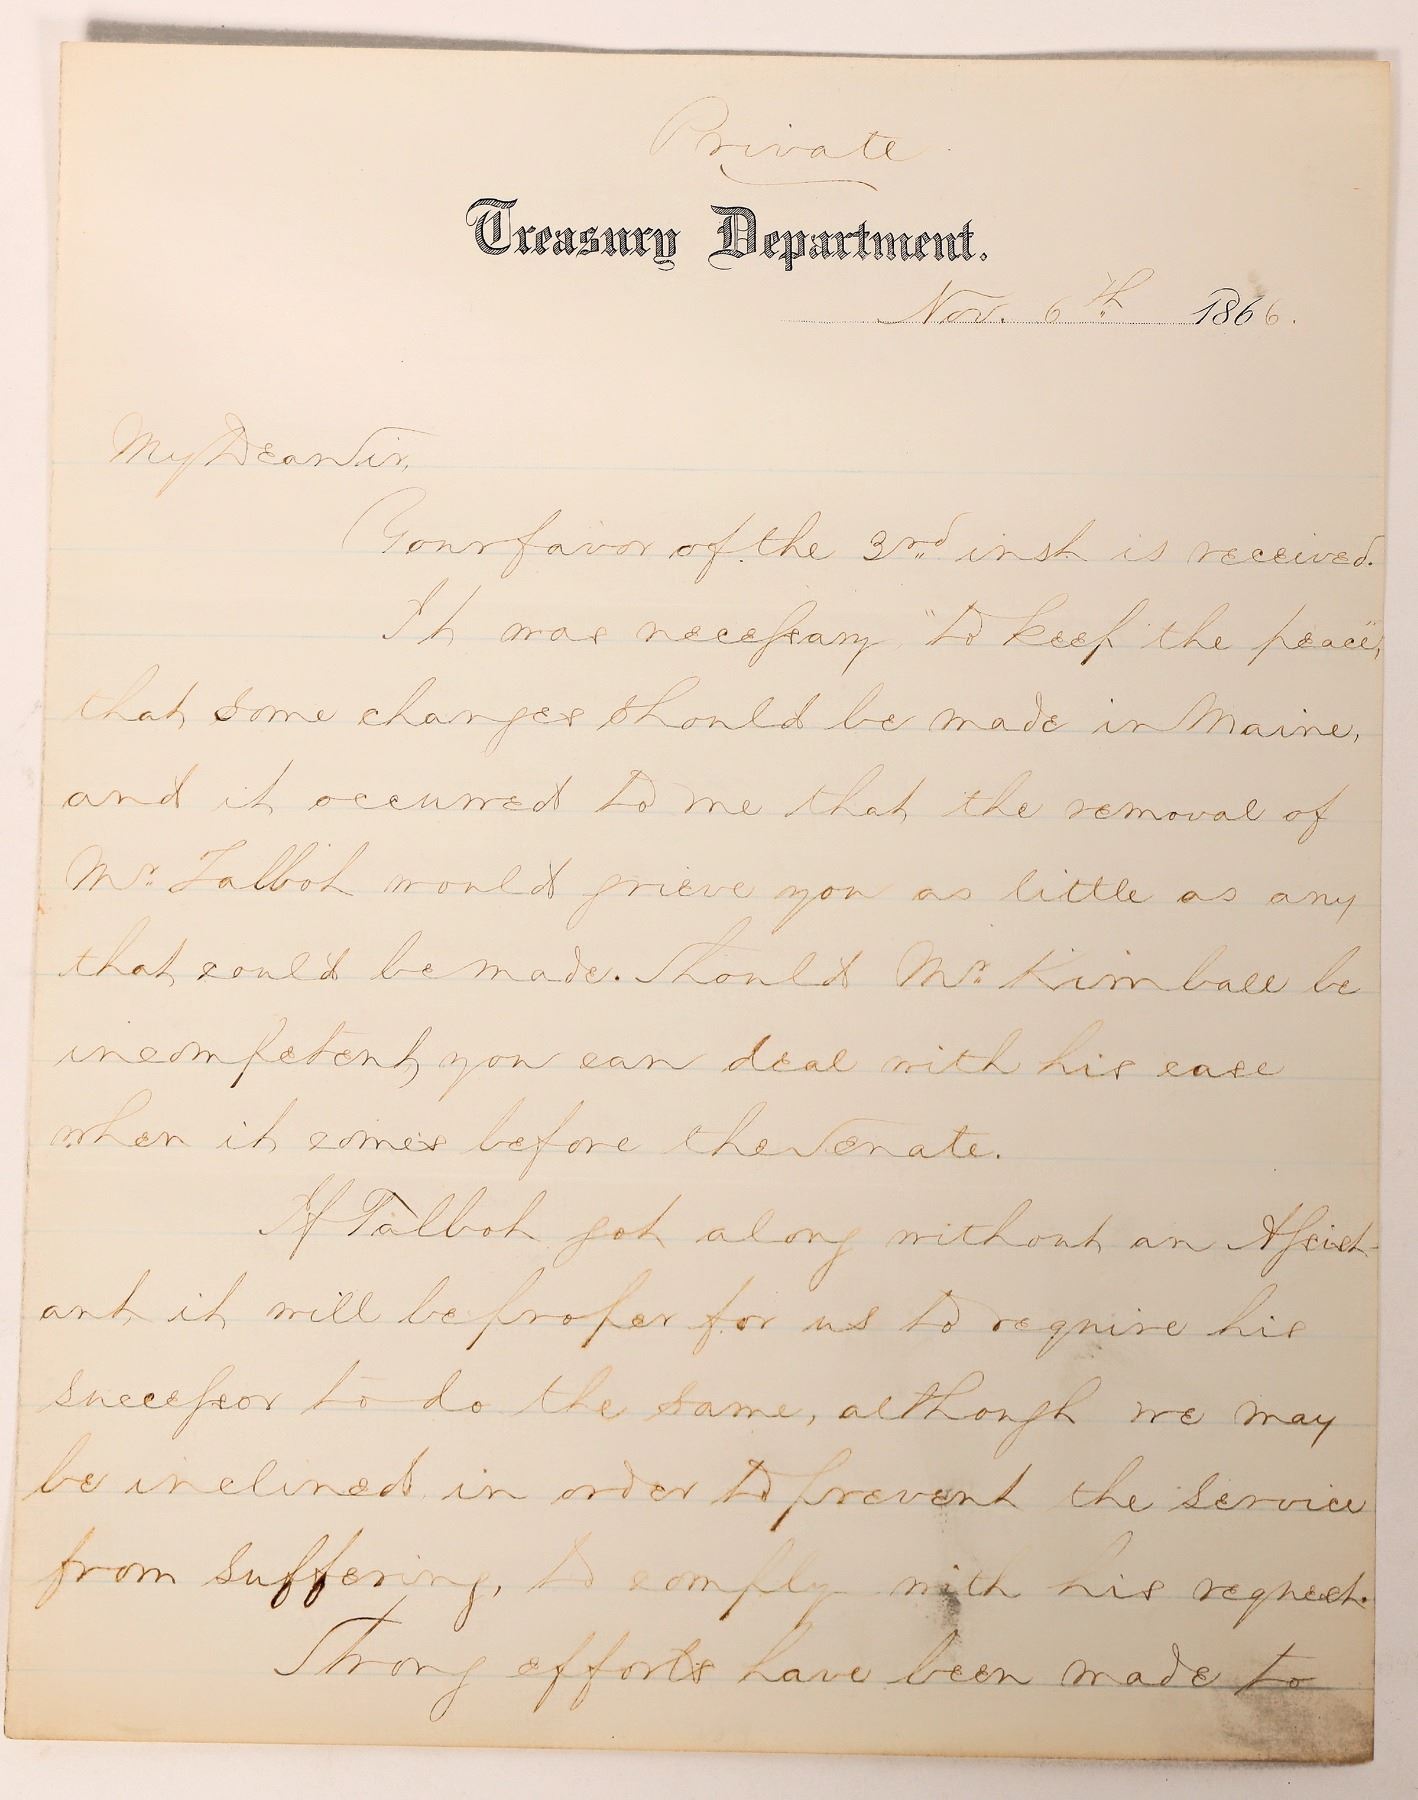 Private
Treasury Department.
Nov. 6th 1866.
My Dear Sir,
Your favor of the 3rd inst. is received.
It was necessary, "to keep the peace",
that some changes should be made in Maine,
and it occurred to me that the removal of
Mr. Talbot would grieve you as little as any
that could be made. Should Mr. Kimball be
incompetent, you can deal with his case
when it comes before the Senate.
If Talbot got along without an Assist-
ant, it will be proper for us to require his
successor to do the same, although we may
be inclined, in order to prevent the service
from suffering, to comply with his request.
Strong efforts have been made to